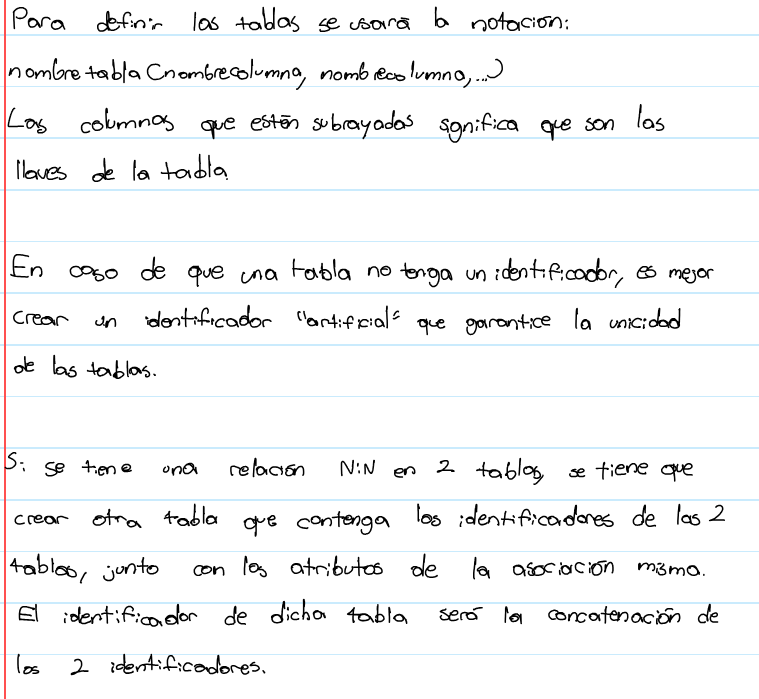 Para definir las tablas se usará la notación:
nombretabla (nombrecolumna, nombrecolumna,...)
Las columnas que estén subrayadas significa que son las
llaves de la tabla.
En caso de que una tabla no tenga un identificador, es mejor
crear un identificador "artificial" que garantice la unicidad
de las tablas.
Si se tiene una relación N:N en 2 tablas, se tiene que
crear otra tabla que contenga los identificadores de las 2
tablas, junto con los atributos de la asociación misma.
El identificador de dicha tabla será la concatenación de
los 2 identificadores.